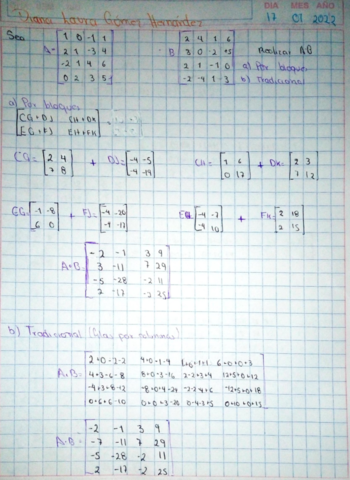 Diana Laura Gómez Hernández
DIA MES AÑO
17 01 2022
Sea
A=
1 0 -1 1
2 1 -3 4
-2 1 4 6
0 2 3 5
B
2 4 1 6
3 0 -2 +5
2 1 -1 0
-2 -4 1 -3
Realizar AB
a) Por bloques
b) Tradicional
a) Por bloques
CG+DJ CH+DK
EG+FJ EH+FK
CG=
2 4
7 8
+ DJ=
-4 -5
-4 -19
CH=
1 6
0 17
+ DK=
2 3
7 12
EG=
-1 -8
6 0
+ FJ=
-4 -20
-4 -17
EH
-4 -7
-4 10
+ FK=
2 18
2 15
A·B
-2 -1 3 9
3 -11 7 29
-5 -28 -2 11
2 -17 -2 25
b) Tradicional (filas por columnas)
A·B=
0+0+0+3
4+3-6-8 8+0-3-16 2-2+3+4 12+5+0+12
-4+3+8-12 -8+0+4-24 -2-2-4+6 -12+5+0+18
0+6+6-10 0-4-3+5 0+10+0+15
A·B=
-2 -1 3 9
-7 -11 7 29
-5 -28 -2 11
2 -17 -2 25